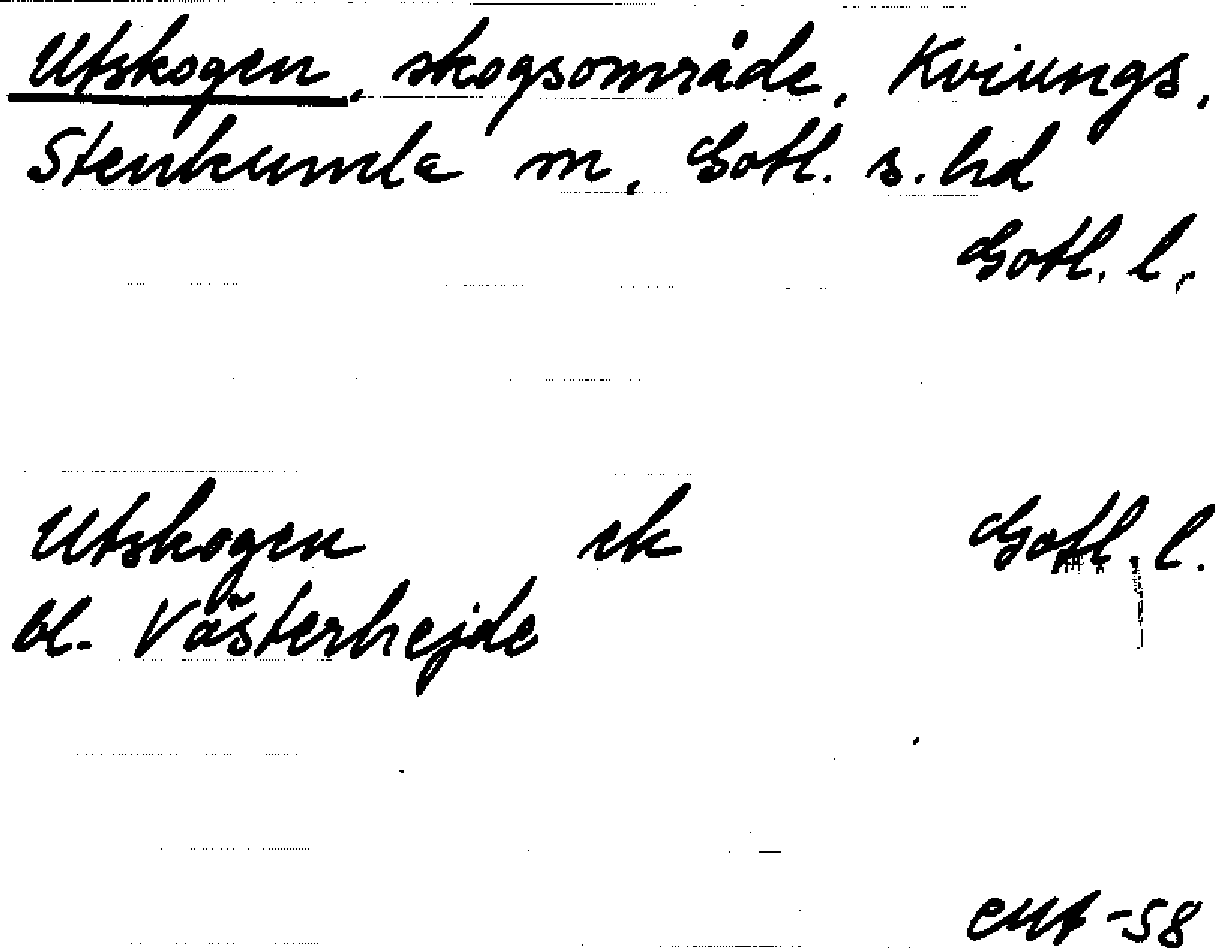 Utskogen, skogsområde, Kviungs,
Stenkumla sn, Gotl. s. hd
Gotl. l.
Utskogen ek Gotl. l.
bl. Västerhejde
-58